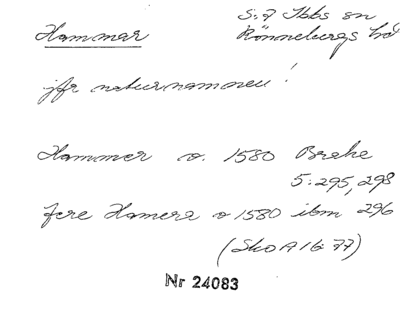 Hammar
S:t Ibbs sn
Rönnebergs hd
jfr naturnamnen!
Hammer o. 1580 Brahe
5:295, 298
fere Hamers o 1580 ibm 296
(SkO A 16:77)
Nr 24083